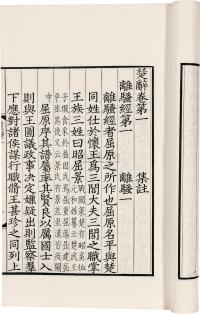 楚辭卷第一 集註
離騷經第一 離騷一
離騷經者屈原之所作也屈原名平與楚
同姓仕於懷王爲三閭大夫三閭之職掌
王族三姓曰昭屈景
屈原序其譜屬率其賢良以厲國士入
則與王圖議政事決定嫌疑出則監察羣
下應對諸侯謀行職脩王甚珍之同列上